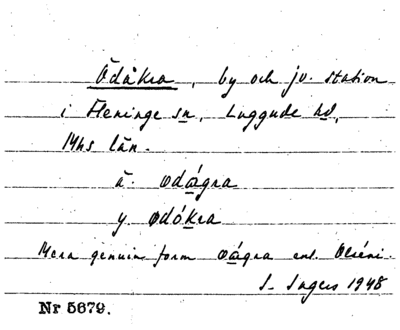 Ödåkra, by och jv. station
i Fleninge sn, Luggude hd,
Mhs län.
ä. odágra
y. odókra
Mera genuin form oágra enl. Olséni.
I. Ingers 1948
Nr 5679.